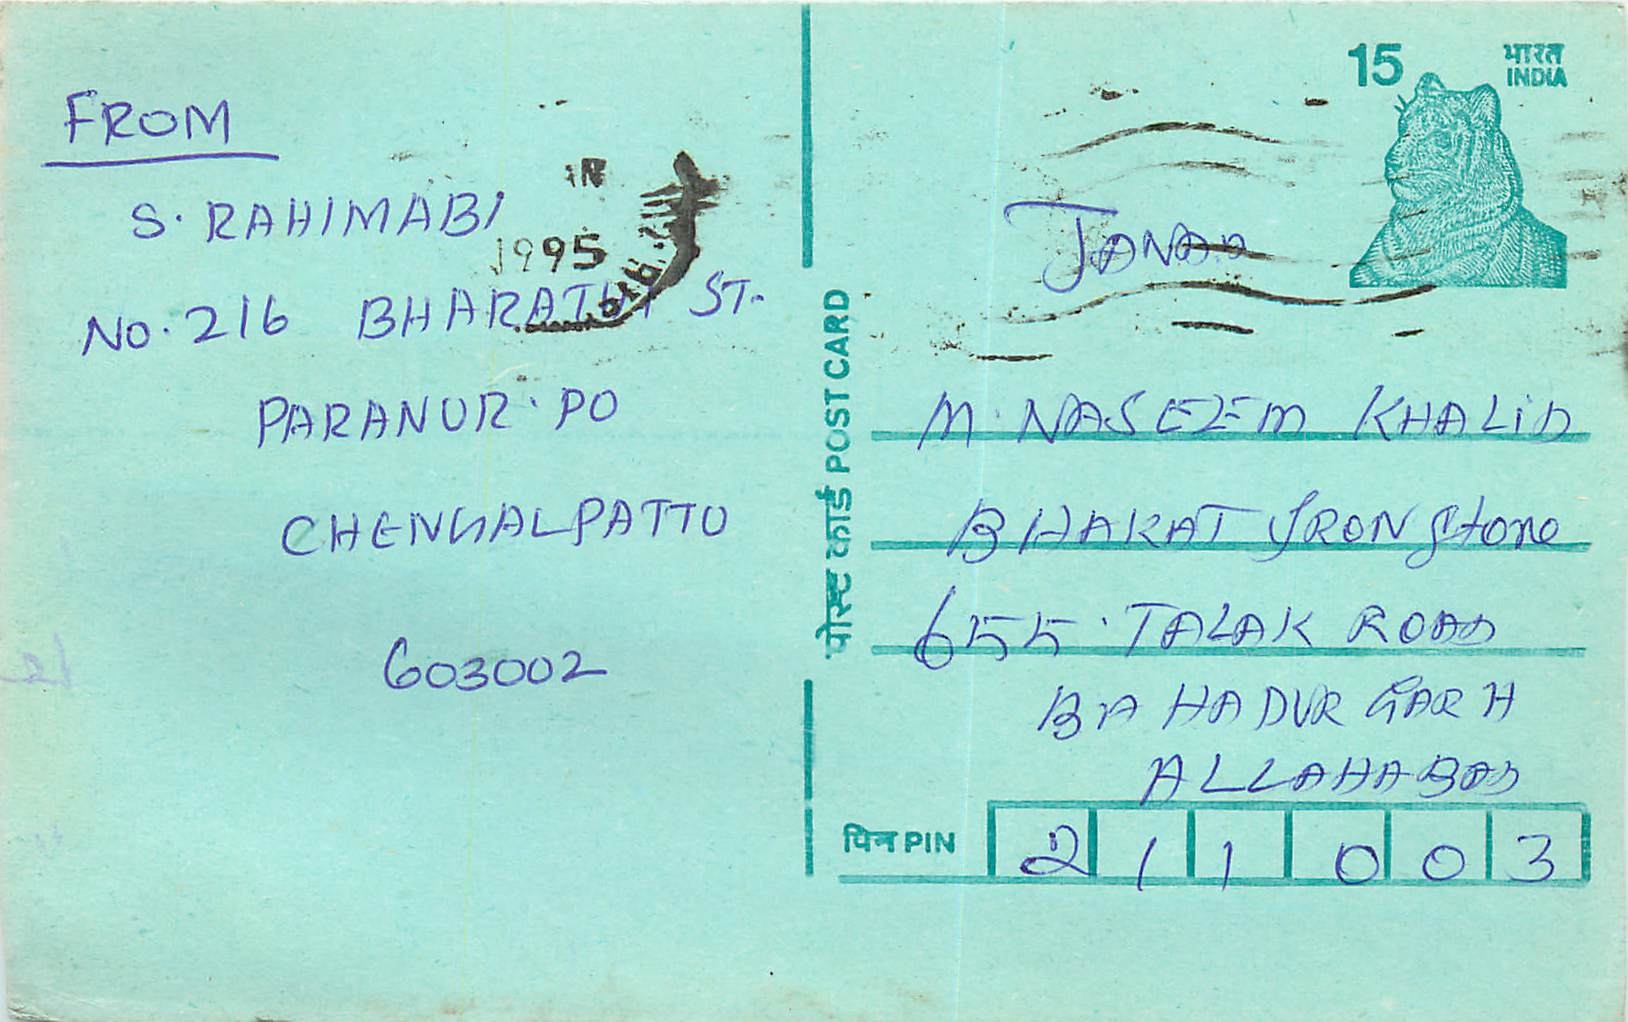 FROM
S. RAHIMABI
NO. 216 BHARATHI ST.
PARANUR. PO
CHENGALPATTU
603002
1995
पोस्ट कार्ड POST CARD
15 भारत
INDIA
JANAB
M. NASEEM KHALID
BHARAT IRON Store
655. TALAK ROAD
BAHADUR GARH
ALLAHABAD
पिन PIN 211003